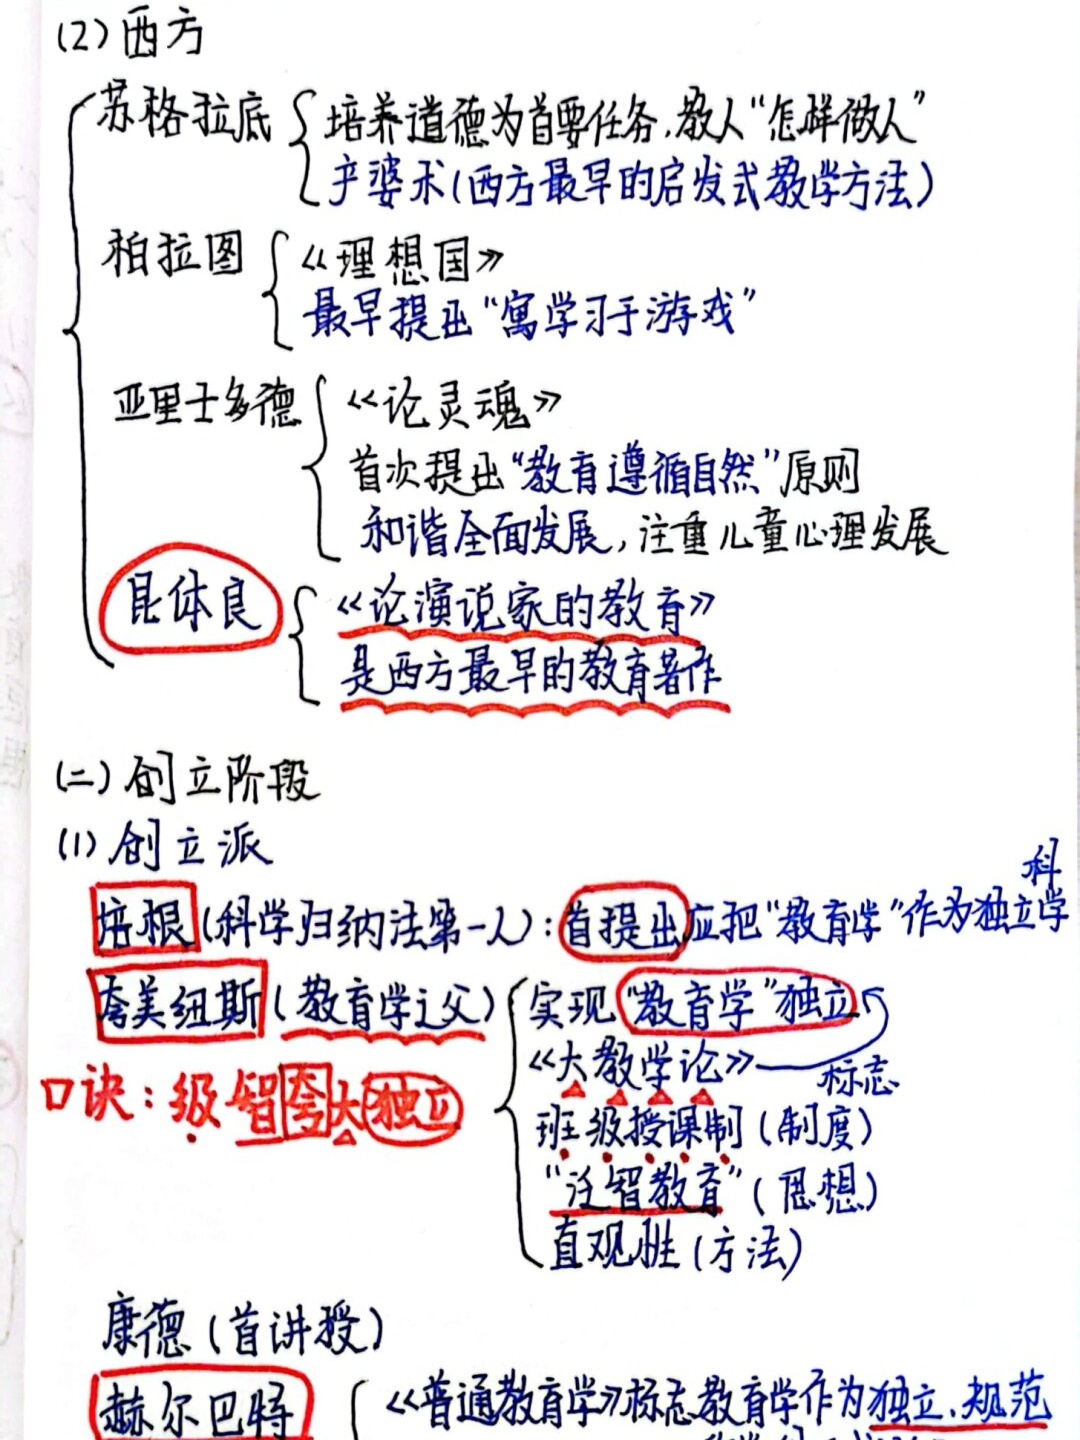 (2) 西方
苏格拉底
培养道德为首要任务,教人“怎样做人”
产婆术(西方最早的启发式教学方法)
柏拉图
《理想国》
最早提出“寓学习于游戏”
亚里士多德
《论灵魂》
首次提出“教育遵循自然”原则
和谐全面发展,注重儿童心理发展
昆体良
《论演说家的教育》
是西方最早的教育著作
(二) 创立阶段
(1) 创立派
培根(科学归纳法第一人):首提出应把“教育学”作为独立学
科
夸美纽斯(教育学之父)
实现“教育学”独立
《大教学论》
标志
口诀:级智夸大独立
班级授课制(制度)
“泛智教育”(思想)
直观性(方法)
康德(首讲授)
赫尔巴特
《普通教育学》标志教育学作为独立、规范